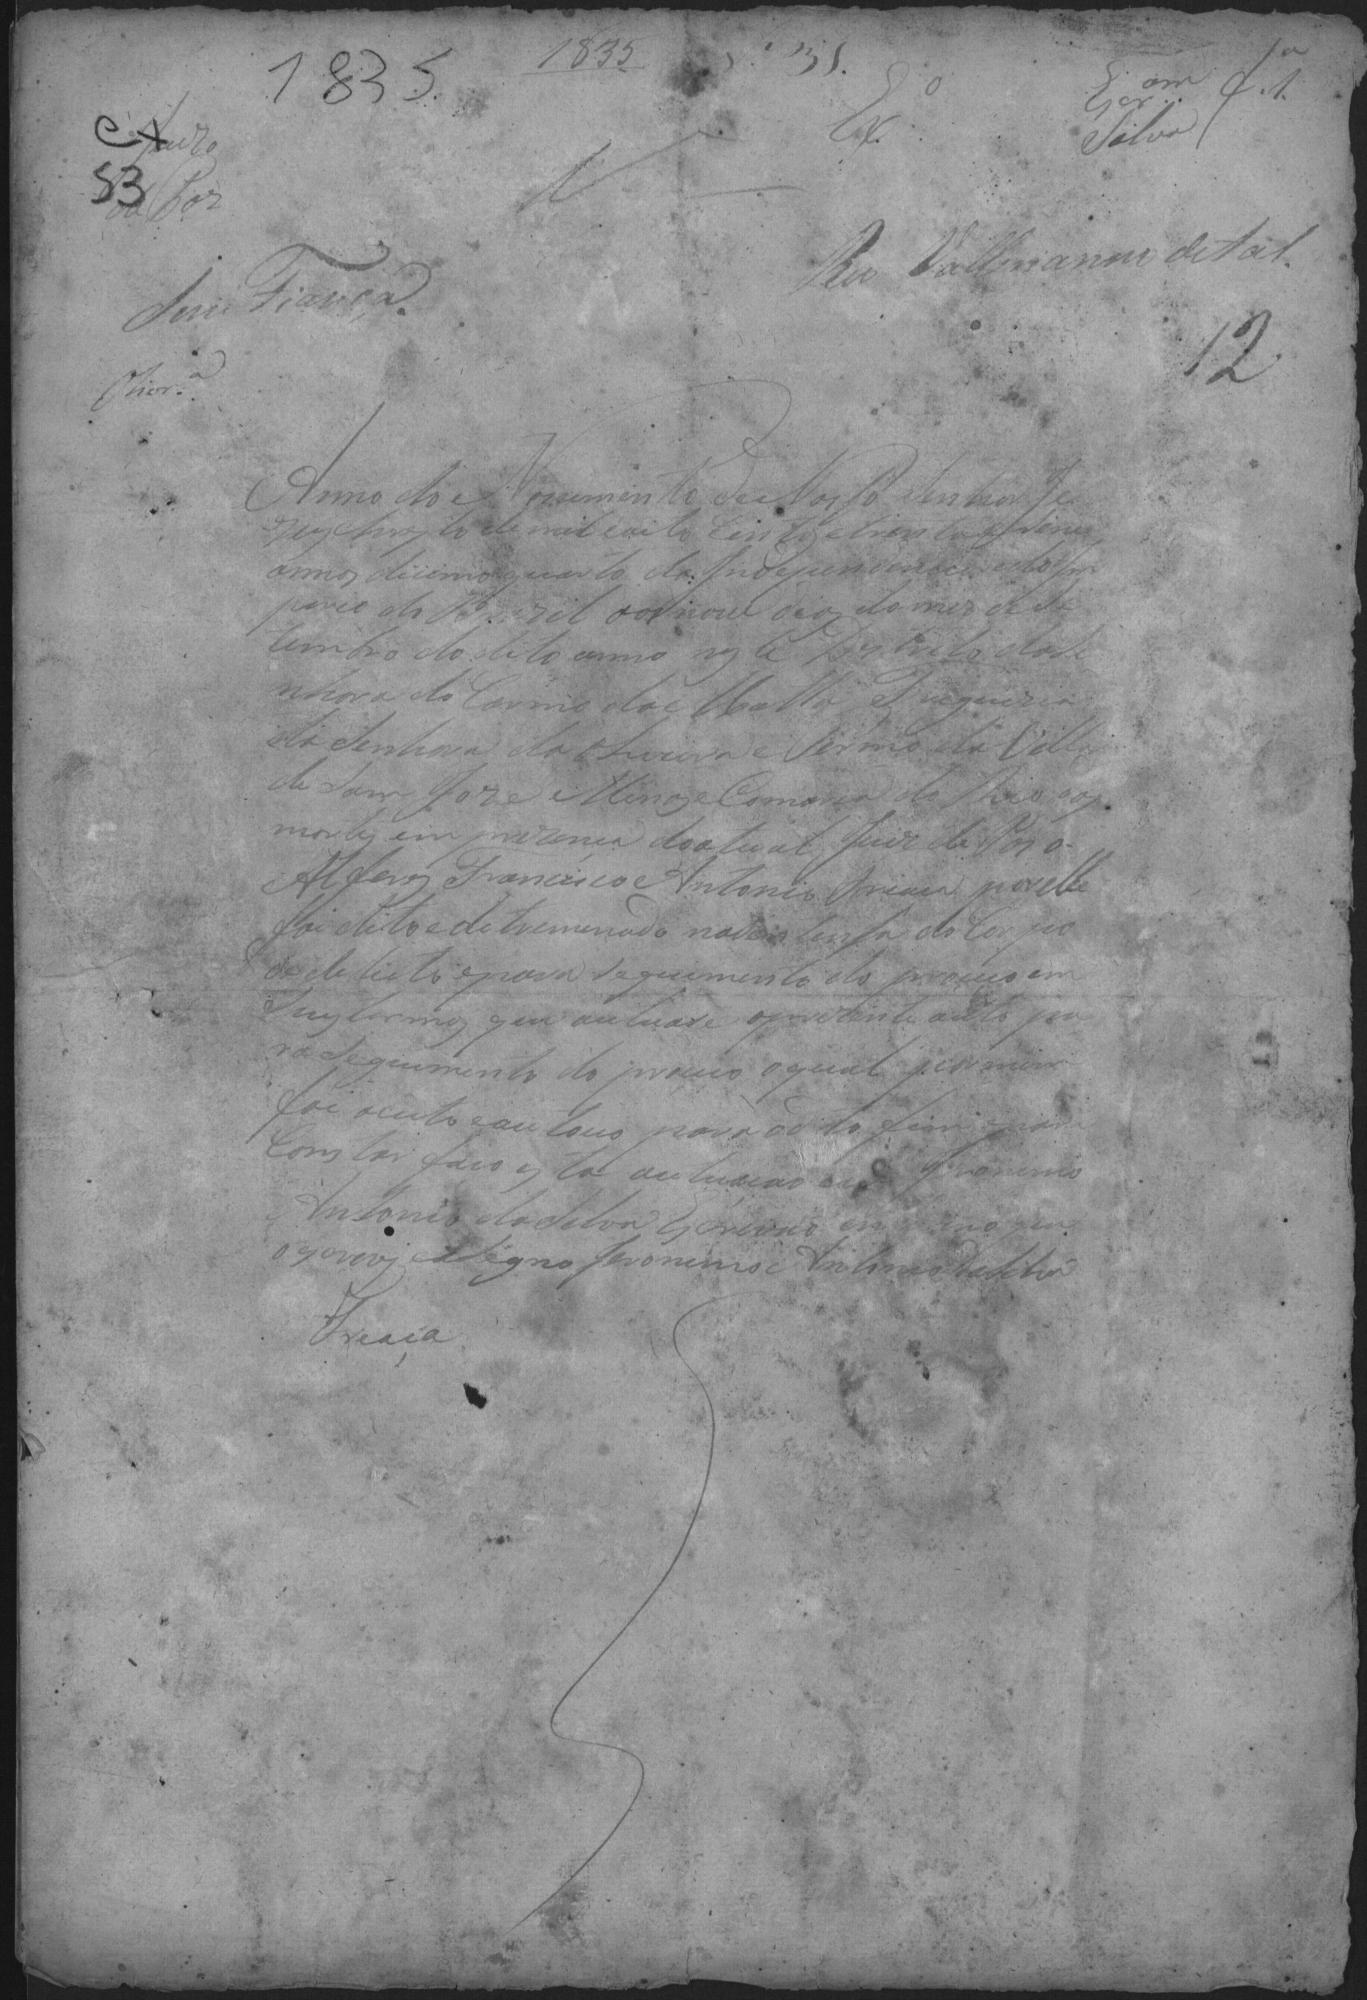 1835.
1835
Ex.º
Escr.am
Silva
f.1.
Cx
53
Juizo
de Paz
Reo Vallerianno de tal.
Sem Fiança.
12
Anno do Nascimento de Nosso Senhor Je
zus christo de mil e oito Centos e trinta e sinco
annos decimo quarto da Independencia e do Im
perio do Brazil aos nove dias do mez de Se
tembro do dito anno neste Destrito da Se
nhora do Carmo da Matta Freguezia
da Senhora da Oliveira e Termo da Villa
de Sam Joze Minas e Comarca do Rio das
mortes em prezença do atual Juiz de Paz o
Alferes Francisco Antonio por elle
foi dito e detremenado na do Corpo
de delicto e para seguimento do proceço em
seus termos que autuase o prezente auto pa
ra seguimento do proceço o qual por mim
foi aceito e autoo para o dito fim e para
Constar faço esta autuação eu Jeronimo
Antonio da Silva Escrivão em que
o escrevy e asigno Jeronimo Antonio da Silva